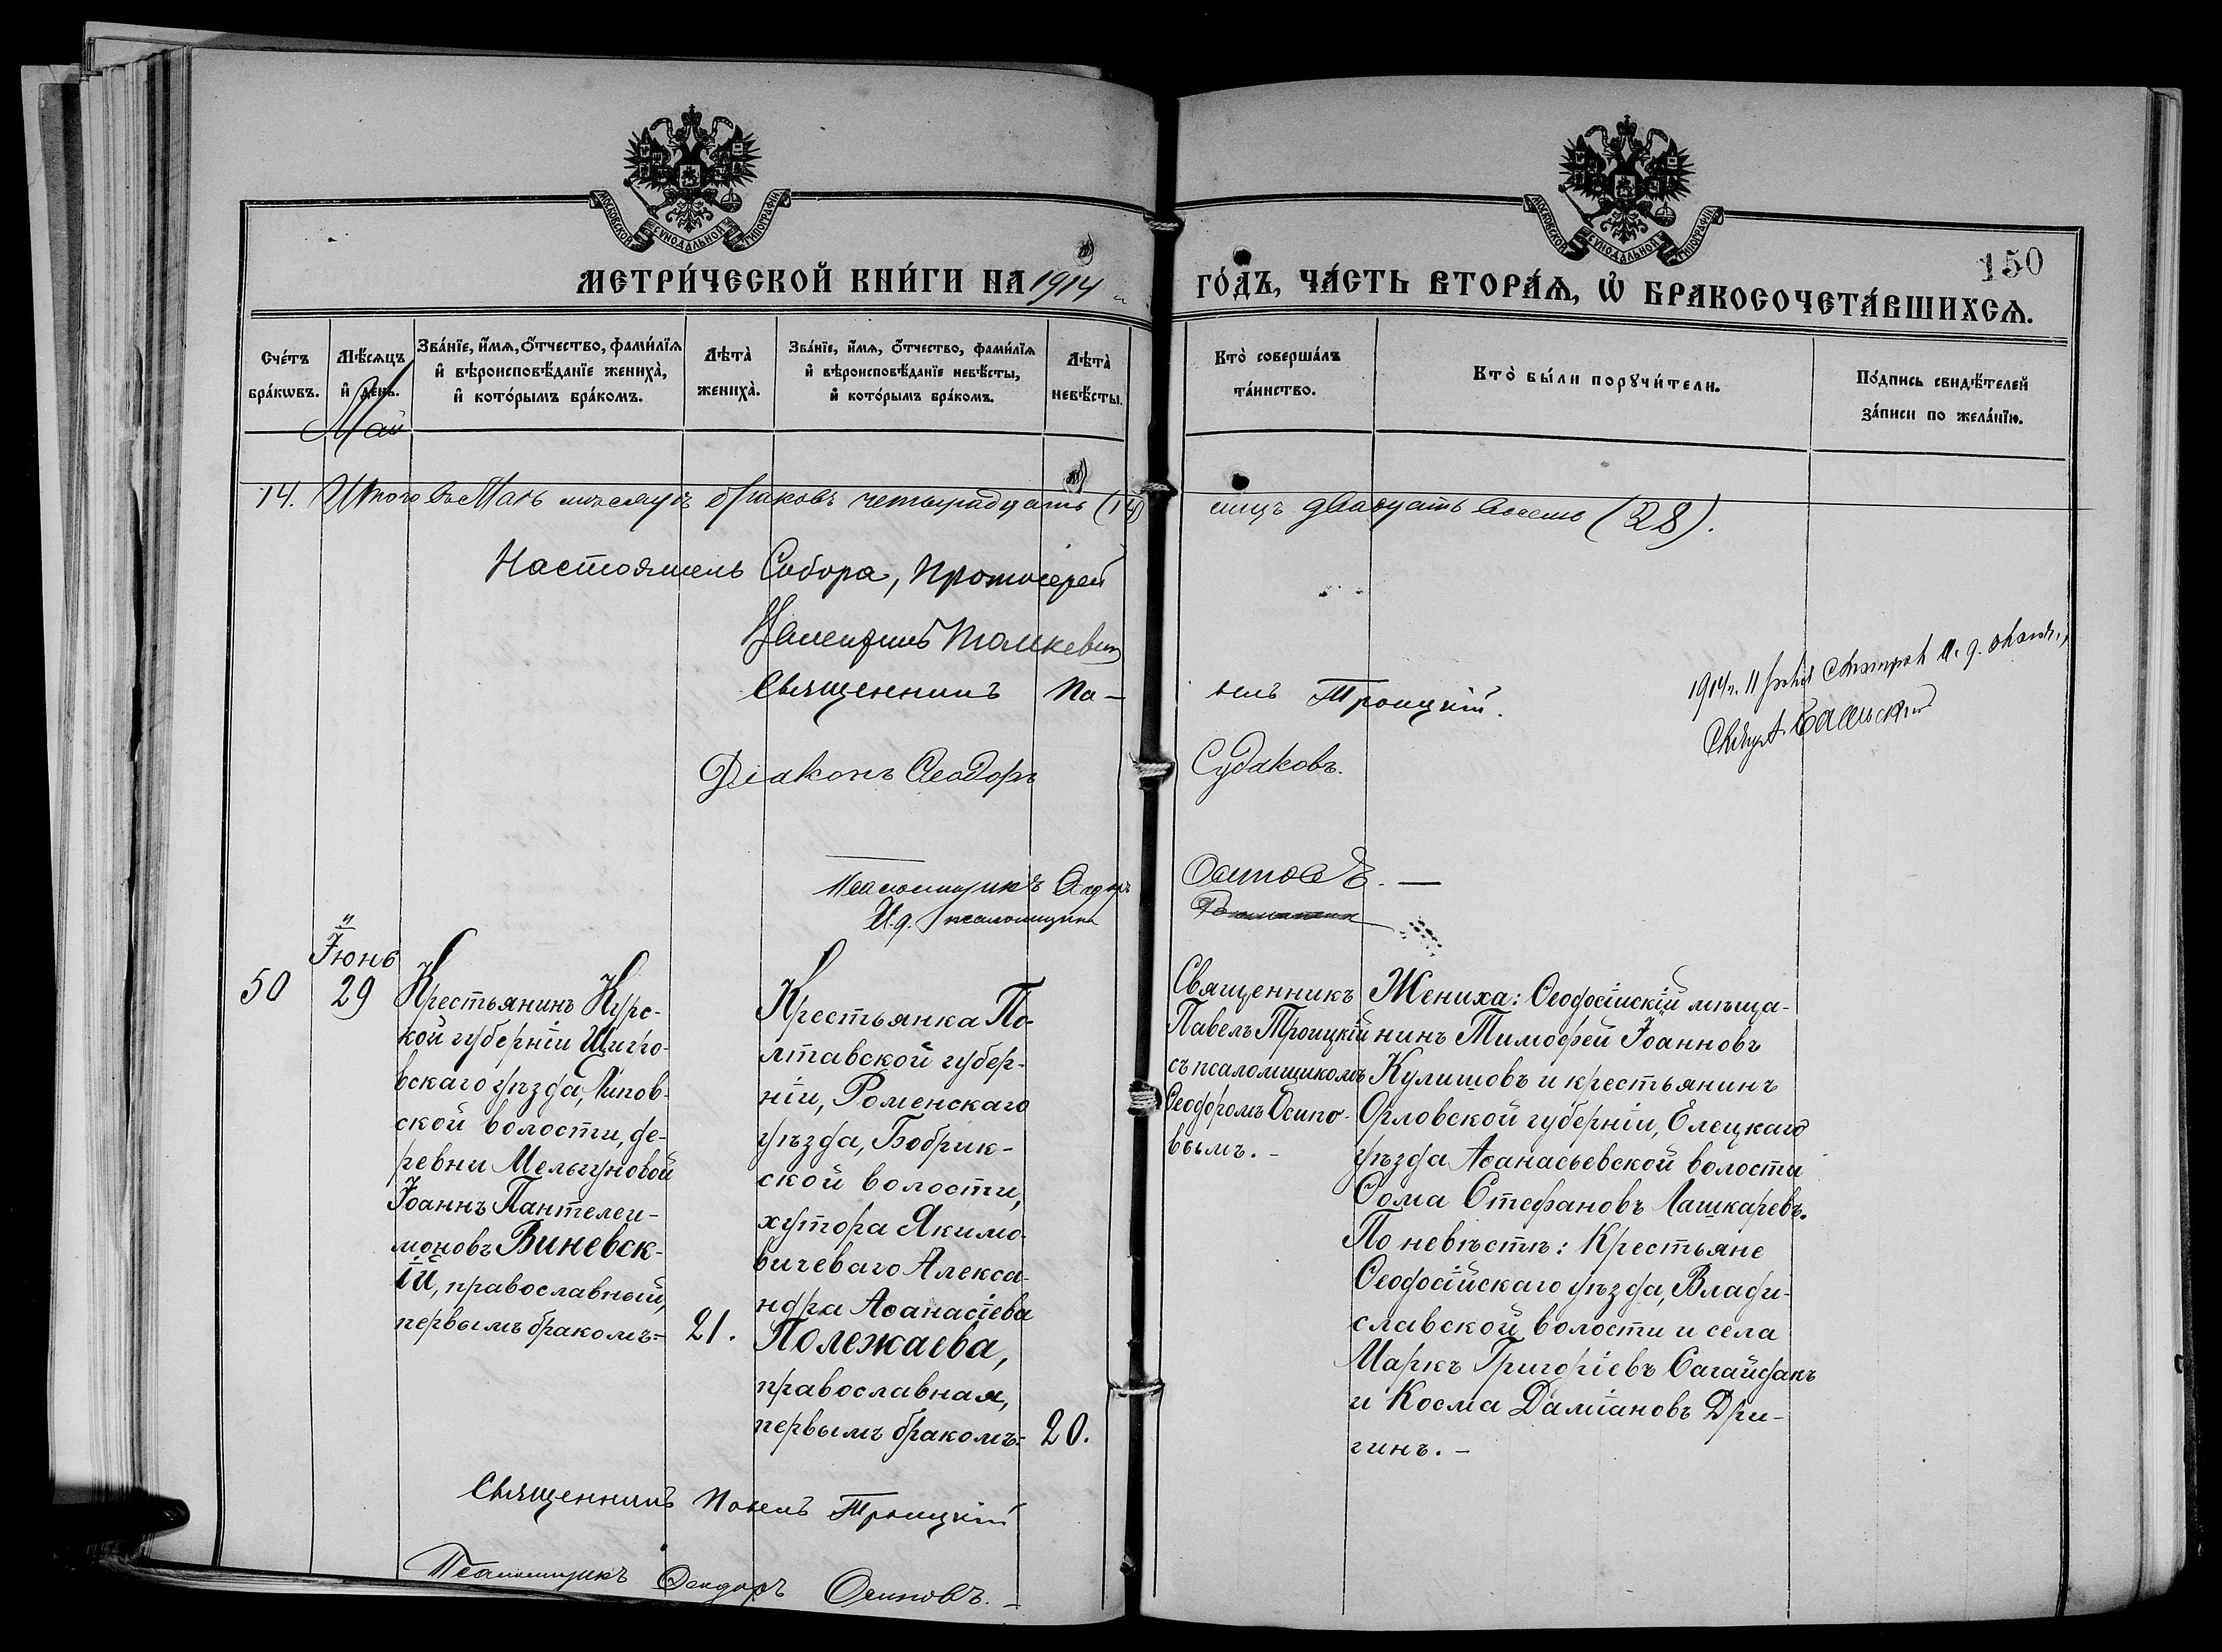 МОСКОВСКОЙ СѴНОДАЛЬНОЙ ТИПОГРАФІИ
МЕТРИ́ЧЕСКОЙ КНИ́ГИ НА 1914
Сче́тъ бра́кѡвъ.
Мѣ́сяцъ и҆ де́нь.
Зва́нїе, и҆́мя, ѻ҆́тчество, фами́лїя и҆ вѣроисповѣ́данїе жениха̀, и҆ кото́рымъ бра́комъ.
Лѣта̀ жениха̀.
Зва́нїе, и҆́мя, ѻ҆́тчество, фами́лїя и҆ вѣроисповѣ́данїе невѣ́сты, и҆ кото́рымъ бра́комъ.
Лѣта̀ невѣ́сты.
Май
МОСКОВСКОЙ СѴНОДАЛЬНОЙ ТИПОГРАФІИ
150
ГО́ДЪ, ЧА́СТЬ ВТОРА́Ѧ, Ѡ҆ БРАКОСОЧЕТА́ВШИХСѦ.
Кто̀ соверша́лъ та́инство.
Кто̀ бы́ли порꙋчи́тели.
По́дпись свидѣ́телей за́писи по жела́нїю.
14. Итого въ Маѣ мѣсяцѣ браковъ четырнадцать (14) лицъ двадцать восемь (28).
Настоятель Собора, Протоіерей
Священникъ Павелъ Троицкій.
Діаконъ Ѳеодоръ Судаковъ.
Псаломщикъ Ѳедоръ Осиповъ. —
И.д. псаломщика
1914 г. 11
Іюнь
50
29
Крестьянинъ Кур-
ской губерніи Щигро-
вскаго уѣзда, Липов-
ской волости, де-
ревни Мельгуновой
Іоаннъ Пантелеи-
моновъ Виневск-
ій, православный,
первымъ бракомъ=
21.
Крестьянка По-
лтавской губер-
ніи, Роменскаго
уѣзда, Бобрик-
ской волости,
хутора Якимо-
вичеваго Алекса-
ндра Аѳанасіева
Полежаева,
православная,
первымъ бракомъ=
20.
Священникъ
Павелъ Троицкій
съ псаломщикомъ
Ѳеодоромъ Осипо-
вымъ. -
Жениха: Ѳеодосійскій мѣща-
нинъ Тимоѳей Іоанновъ
Кулишовъ и крестьянинъ
Орловской губерніи, Елецкаго
уѣзда Аѳанасьевской волости
Ѳома Стефановъ Лашкаревъ.
По невѣстѣ: Крестьяне
Ѳеодосійскаго уѣзда, Влади-
славской волости и села
Маркъ Григоріевъ Сагайдакъ
и Косма Даміановъ Дри-
гинъ. -
Священникъ Павелъ Троицкій
Псаломщикъ Ѳеодоръ Осиповъ. -